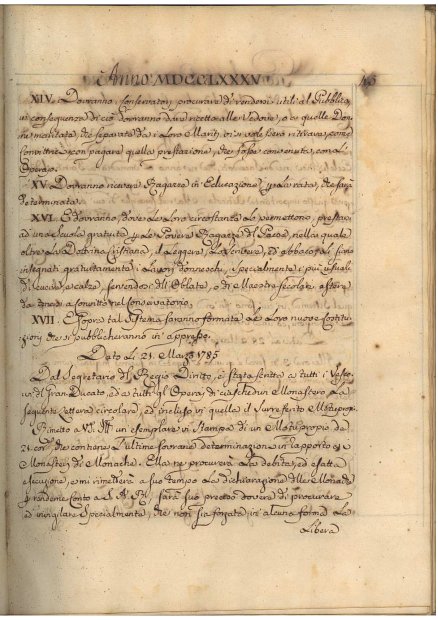 Anno MDCCLXXXV
XIV. Dovranno i Conservatorj procurare di rendersi utili al Pubblico,
in conseguenza di ciò dovranno dare ricetto alle Vedove, o a quelle Don-
ne maritate, che separate da i Loro Mariti, vi si volessero ritirare, come
Convittrici con pagare quella prestazione, che fosse convenuta, con L'
Operajo.
XV. Dovranno ricevere Ragazze in Educazione per La retta, che sarà
determinata.
XVI. E dovranno, dove Le Loro circostanze Lo permettono, prestarsi
ad una Scuola gratuita per Le Povere Ragazze del Paese, nella quale
oltre La Dottrina Cristiana, il Leggere, Lo Scrivere, ed abbaco gli siano
insegnati gratuitamente i Lavori donneschi, e specialmente i più usuali
di cucire, e calze, servendosi dell'Oblate, o di Maestre secolari
da tenersi a convitto nel Conservatorio.
XVII. E sopra tal sistema saranno formate Le Loro nuove Costitu-
zioni che si pubblicheranno in appresso.
Dato Li 21. Marzo 1785
Dal Segretario del Regio Diritto, è stata scritta a tutti i Vesco-
vi del Gran-Ducato ed a tutti gl'Operaj di ciaschedun Monastero La
seguente Lettera circolare, ed incluso in quella il surreferito Motuproprio
Rimetto a V.S. Ill. un esemplare in stampa di un Motuproprio de
21. corr. che contiene L'ultime sovrane determinazioni in rapporto ai
Monasterj di Monache. Ella ne procurerà La debita, ed esatta
esecuzione, e mi rimetterà a suo tempo La dichiarazione delle Monache
per renderne conto a S. A. R. sarà suo preciso dovere di procurare
e invigilare specialmente, che non sia forzata in alcuna forma La
Libera